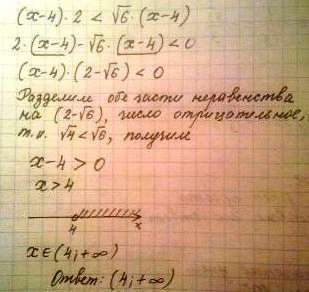 (x-4)·2 < √6·(x-4)
2·(x-4)-√6·(x-4)<0
(x-4)·(2-√6)<0
Разделим обе части неравенства
на (2-√6), число отрицательное,
т.к. √4<√6, получим
x-4>0
x>4
4 x
x∈(4;+∞)
Ответ: (4;+∞)